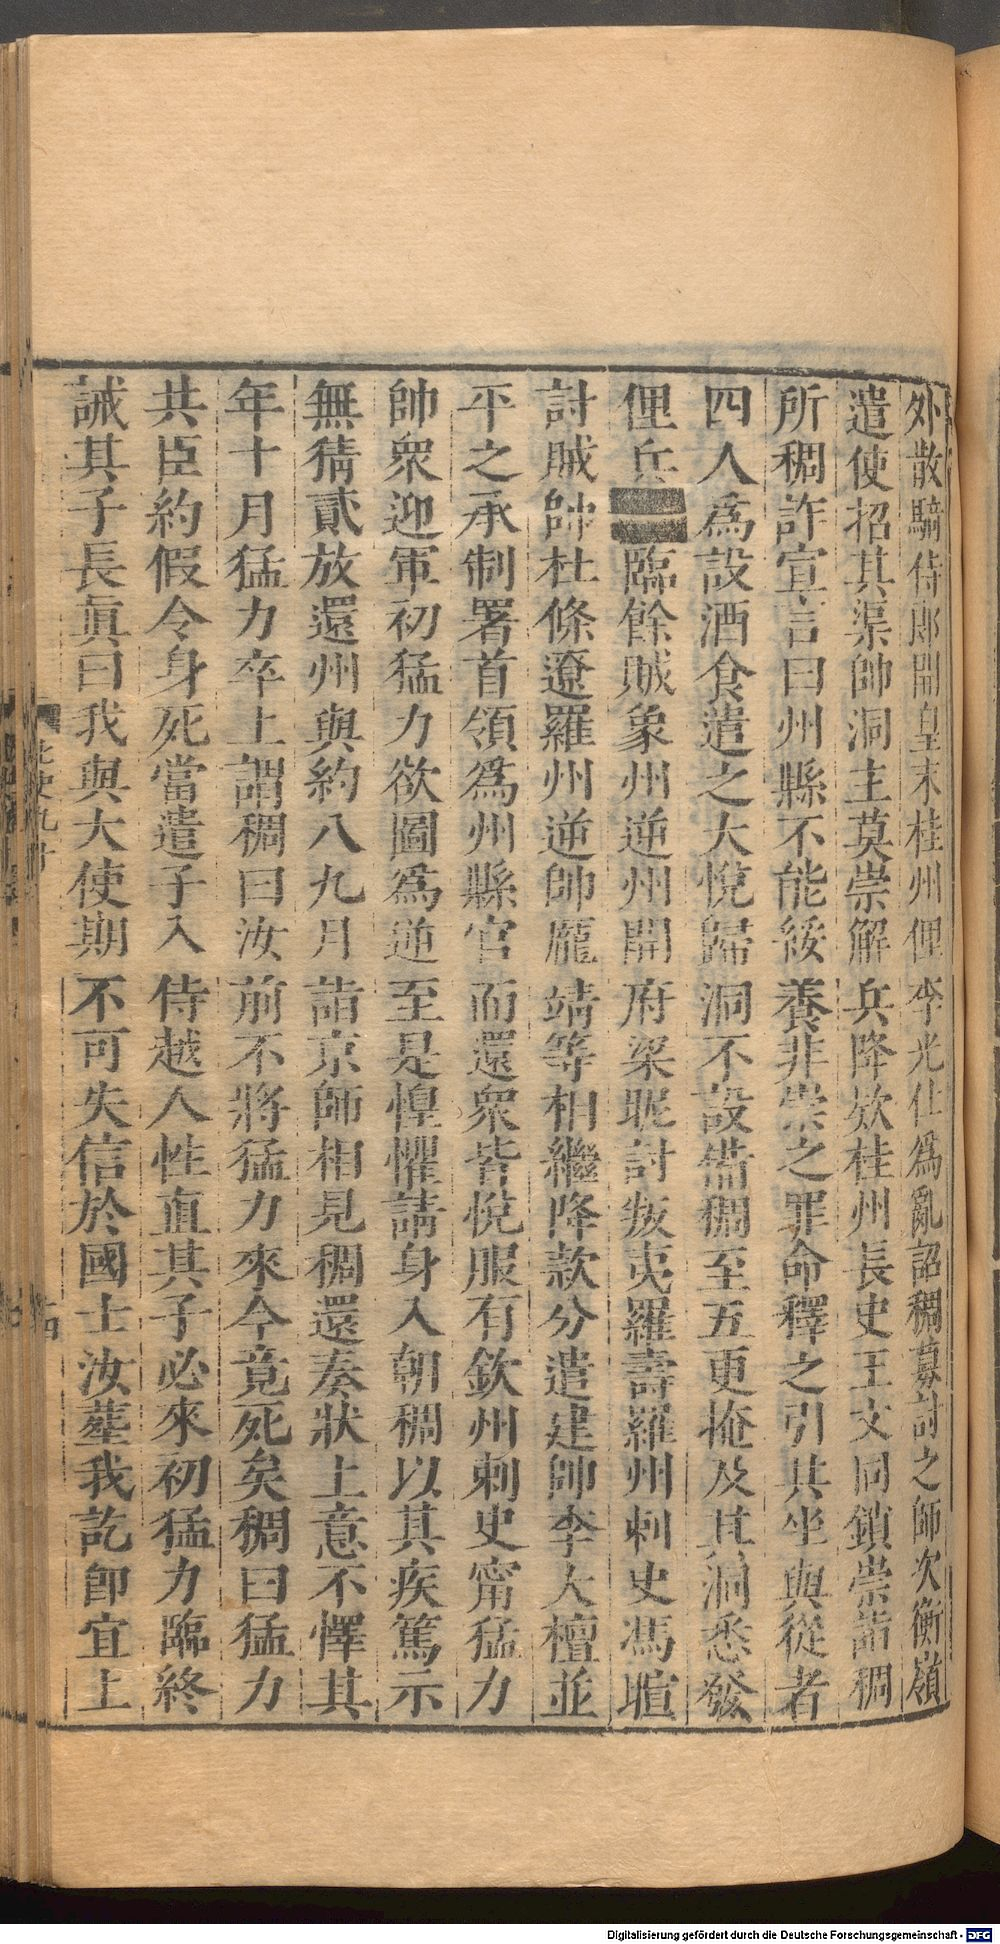 外散騎侍郎開皇末桂州俚李光仕爲亂詔稠募討之師次衡嶺
遣使招其渠帥洞主莫崇解兵降欵桂州長史王文同鎖崇詣稠
所稠詐宣言曰州縣不能綏養非崇之罪命釋之引共坐與從者
四人爲設酒食遣之大悅歸洞不設備稠至五更掩及其洞悉發
俚兵臨餘賊象州逆州開府梁昵討叛夷羅壽羅州刺史馮暄
討賊帥杜條遼羅州逆帥龐靖等相繼降款分遣建帥李大檀並
平之承制署首領爲州縣官而還衆皆悅服有欽州刺史甯猛力
帥衆迎軍初猛力欲圖爲逆至是惶懼請身入朝稠以其疾篤示
無猜貳放還州與約八九月詣京師相見稠還奏狀上意不懌其
年十月猛力卒上謂稠曰汝前不將猛力來今竟死矣稠曰猛力
共臣約假令身死當遣子入侍越人性直其子必來初猛力臨終
誡其子長眞曰我與大使期不可失信於國士汝葬我訖卽宜上
北史九十
十四
Digitalisierung gefördert durch die Deutsche Forschungsgemeinschaft - DFG